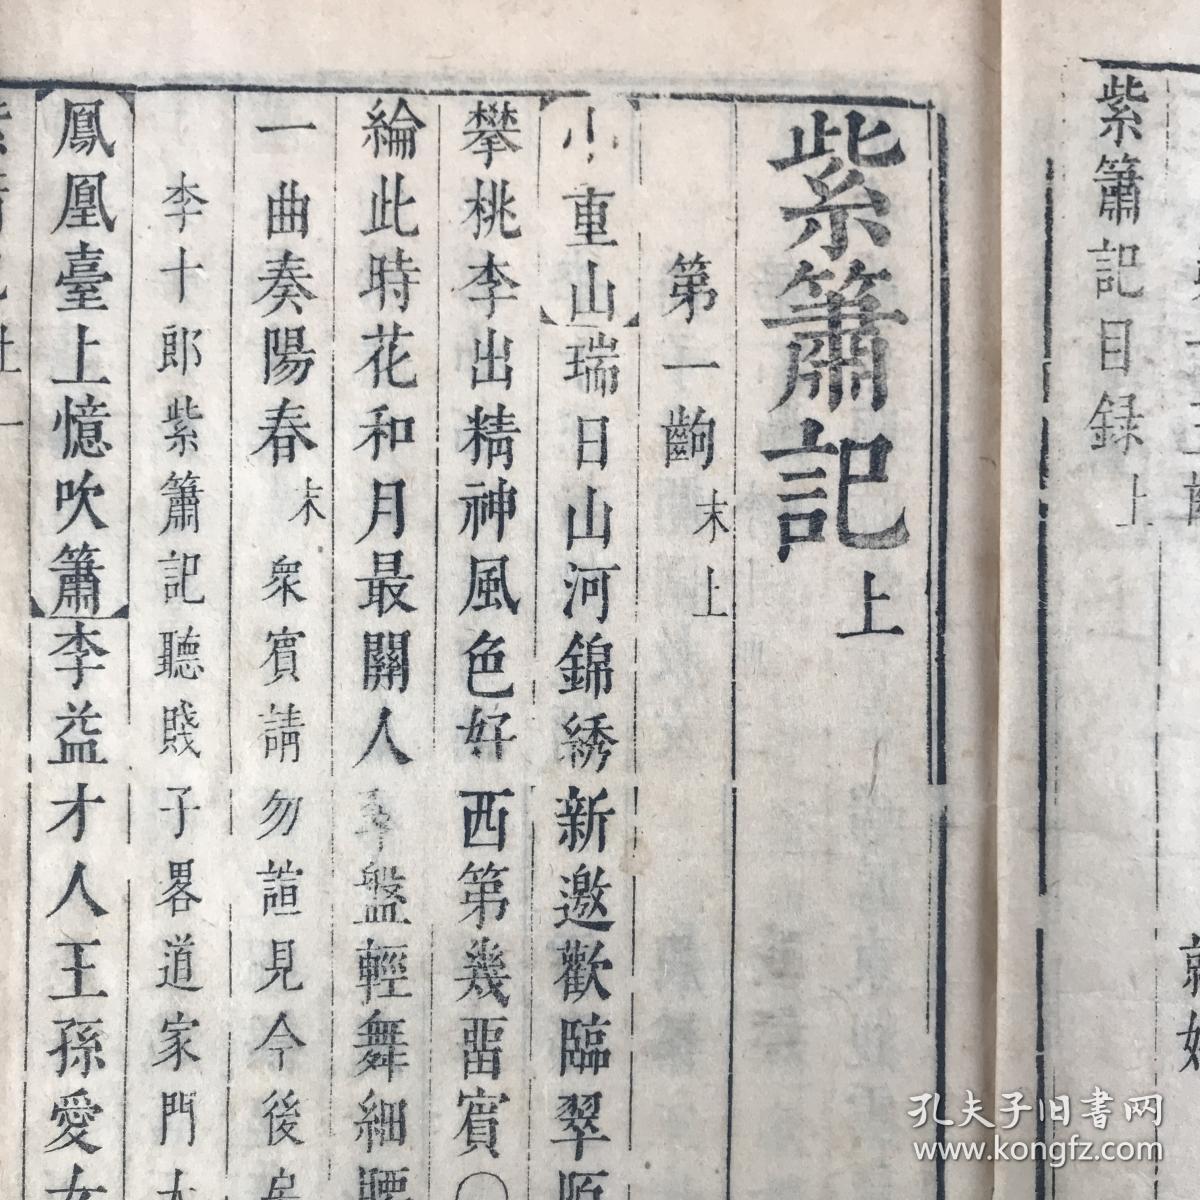 紫簫記目録上
就
紫簫記上
第一齣末上
小重山瑞日山河錦綉新邀歡臨翠
攀桃李出精神風色好西第幾畱賓○
綸此時花和月最關人 盤輕舞細腰
一曲奏陽春末衆賓請勿諠見今後
李十郎紫簫記聽賤子畧道家門
鳳凰臺上憶吹簫李益才人王孫愛女
孔夫子旧书网
www.kongfz.com